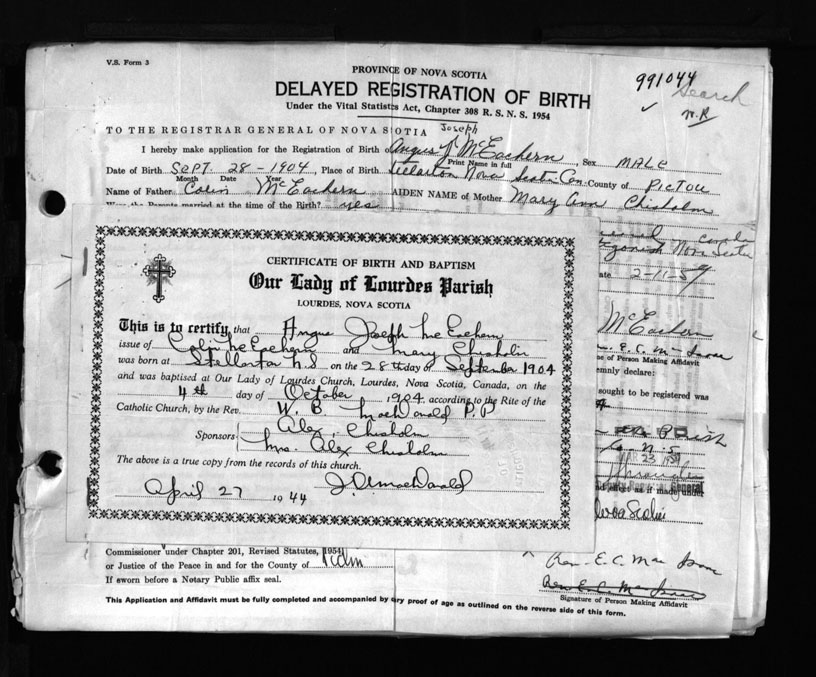 V.S. Form 3
PROVINCE OF NOVA SCOTIA
991044
DELAYED REGISTRATION OF BIRTH
Search
Under the Vital Statistics Act, Chapter 308 R. S. N. S. 1954
TO THE REGISTRAR GENERAL OF NOVA SCOTIA
Joseph
I hereby make application for the Registration of Birth of Angus J McEachern, Sex MALE
Print Name in full
Date of Birth SEPT. 28-1904, Place of Birth Stellarton Nova Scotia Can County of PICTOU
Month Date Year
Name of Father Colin McEachern AIDEN NAME of Mother Mary Ann Chisholm
Were the Parents married at the time of the Birth? yes
Nova Scotia
ate 2-11-59
CERTIFICATE OF BIRTH AND BAPTISM
Our Lady of Lourdes Parish
LOURDES, NOVA SCOTIA
McEachern
This is to certify, that Angus Joseph McEachern
issue of Colin McEachern and Mary Chisholm
E. C. M Isaac
e of Person Making Affidavit
was born at Stellarton N.S on the 28th day of September 1904
emnly declare:
and was baptised at Our Lady of Lourdes Church, Lourdes, Nova Scotia, Canada, on the
ought to be registered was
4th day of October 1904, according to the Rite of the
Catholic Church, by the Rev. W. B MacDonald P.P
Alex. Chisholm
Sponsors
Mrs. Alex Chisholm
Parish
N.S
The above is a true copy from the records of this church.
April 27 1944 J. A. MacDonald
Nova Scotia
Commissioner under Chapter 201, Revised Statutes, 1954
or Justice of the Peace in and for the County of
Rev. E. C. Mac Isaac
If sworn before a Notary Public affix seal.
Rev. E. C. Mac Isaac
Signature of Person Making Affidavit
This Application and Affidavit must be fully completed and accompanied by ry proof of age as outlined on the reverse side of this form.